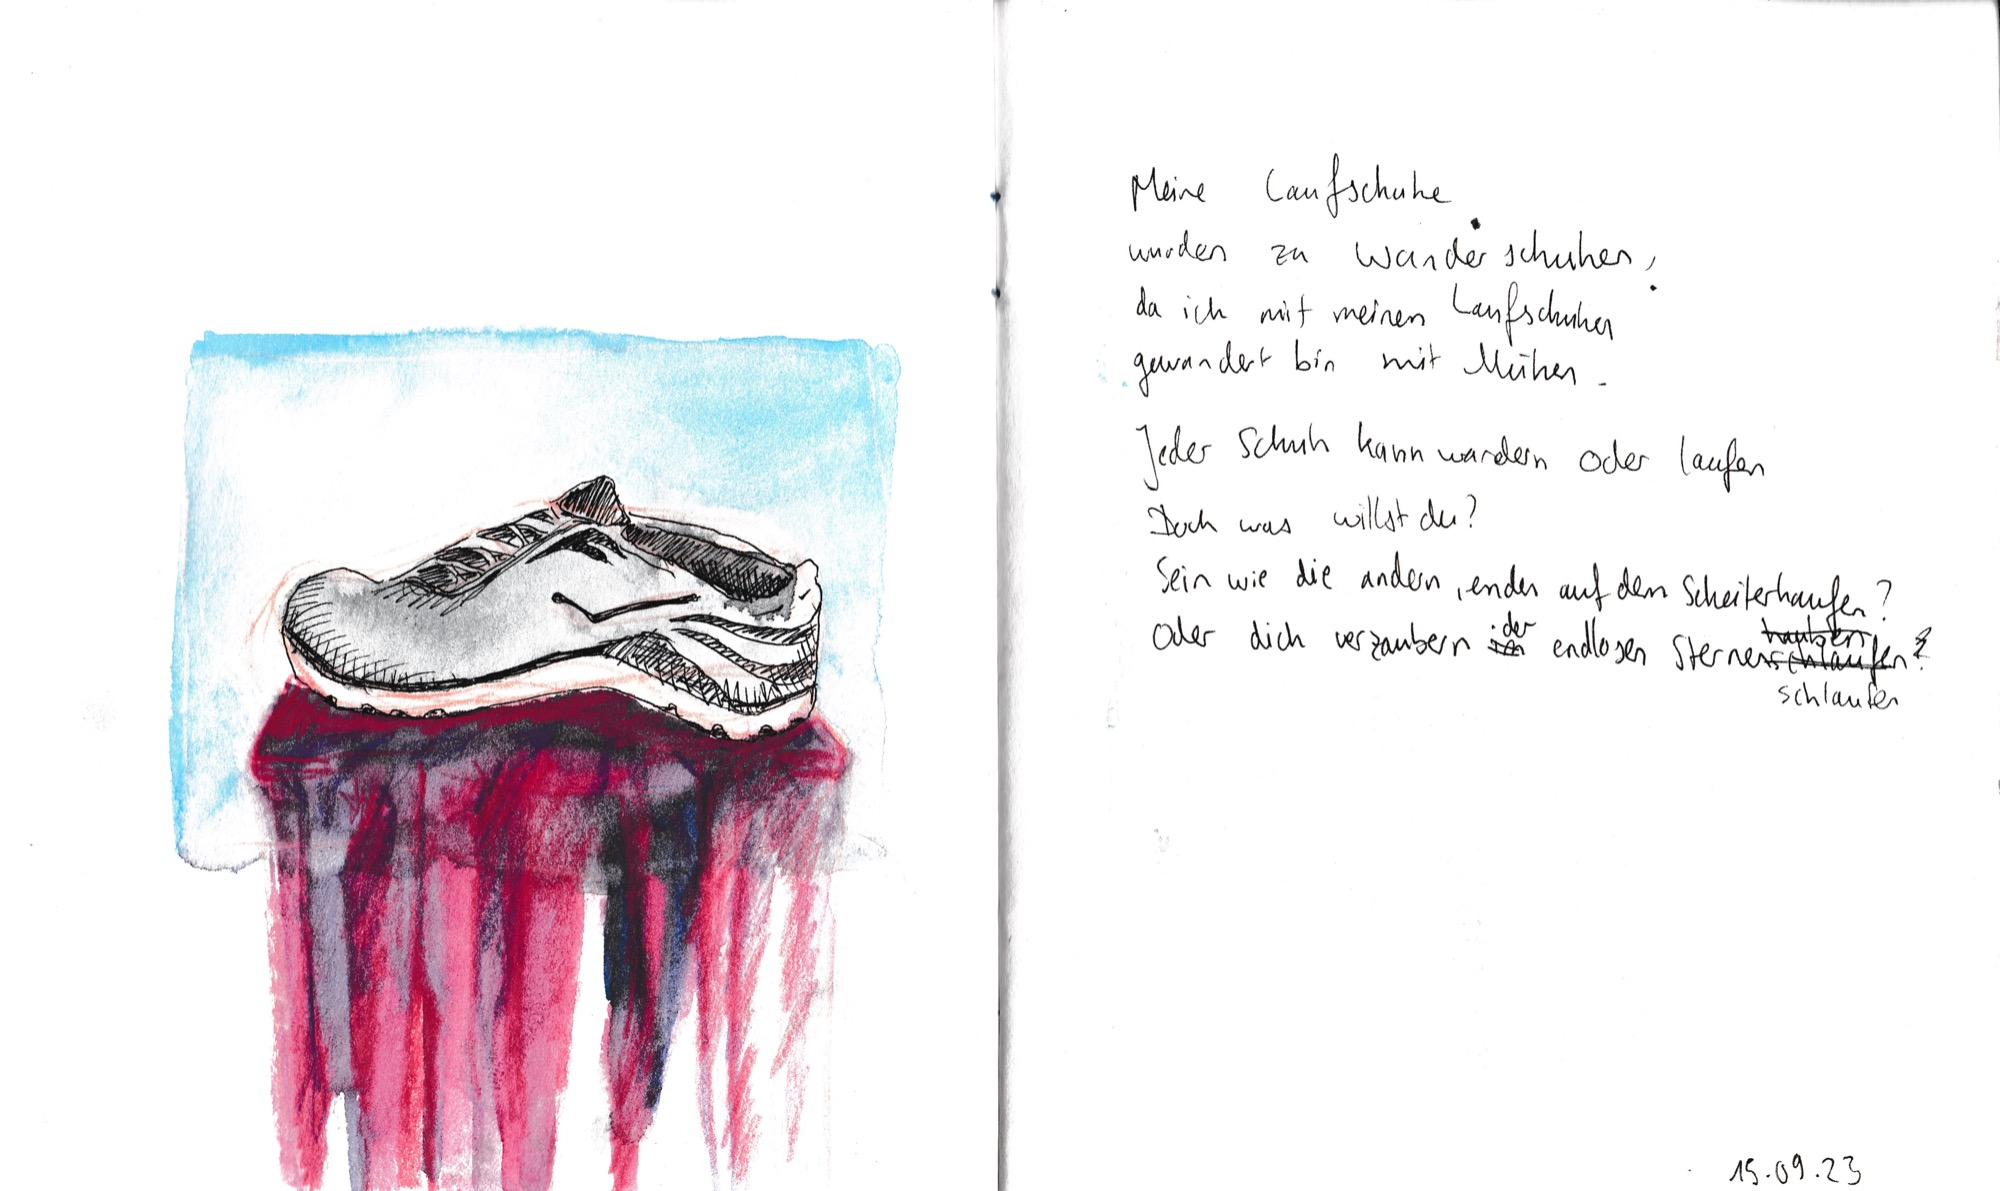 Meine Laufschuhe
wurden zu Wanderschuhen,
da ich mit meinen Laufschuhen
gewandert bin mit Mühen.
Jeder Schuh kann wandern oder laufen
Doch was willst du?
Sein wie die andern, enden auf dem Scheiterhaufen?
Oder dich verzaubern der endlosen Sternen
schlaufen
15.09.23